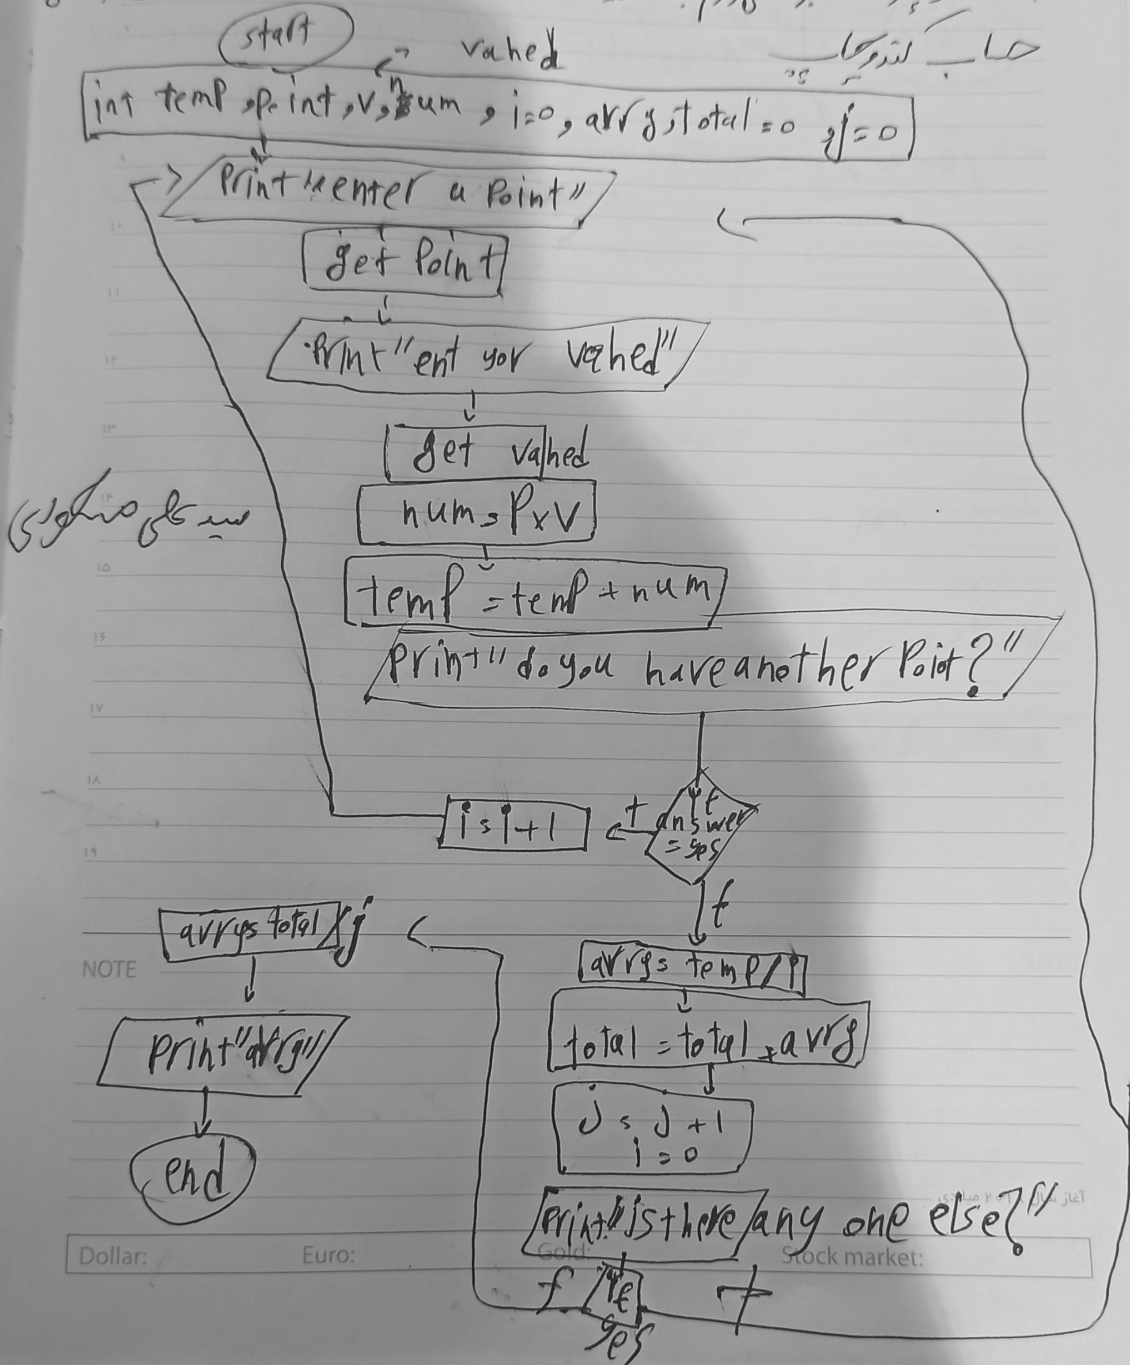 start
vahed
int temp, point, v, num, i=0, avrg, total=0, j=0
print "enter a point"
get point
print "ent yor vahed"
get vahed
num = P×V
temp = temp + num
print "do you have another Poit?"
if answer = yes
t
i = i+1
f
avrg = temp/i
total = total + avrg
j = j+1
i = 0
print "is there any one else?"
if yes
t
f
avrg = total/j
print "avrg"
end
۱۰
۱۱
۱۲
۱۳
۱۴
۱۵
۱۶
۱۷
۱۸
۱۹
NOTE
Dollar: Euro: Gold: Stock market: